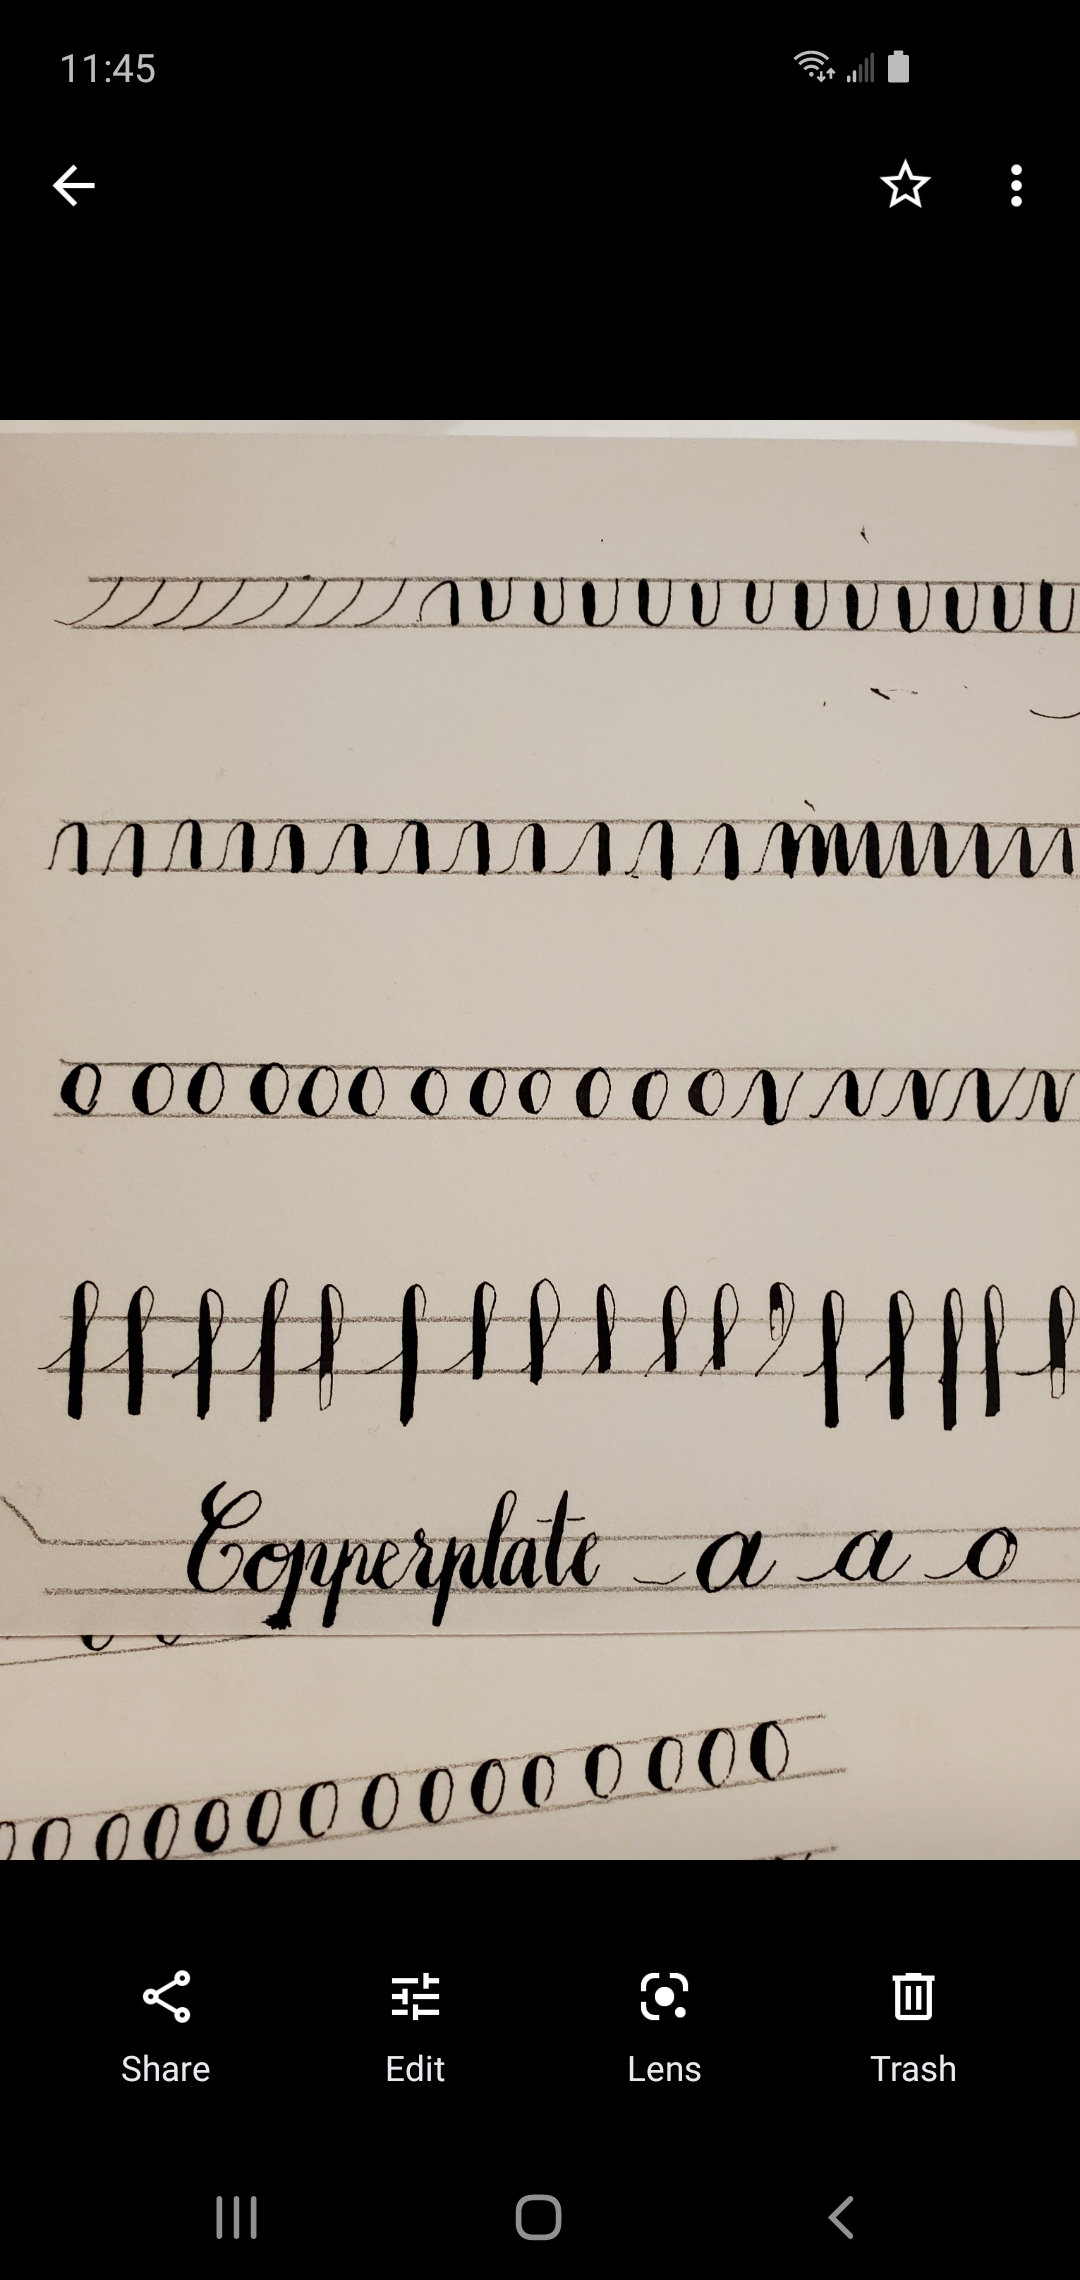 11:45
Copperplate a a o
Share Edit Lens Trash